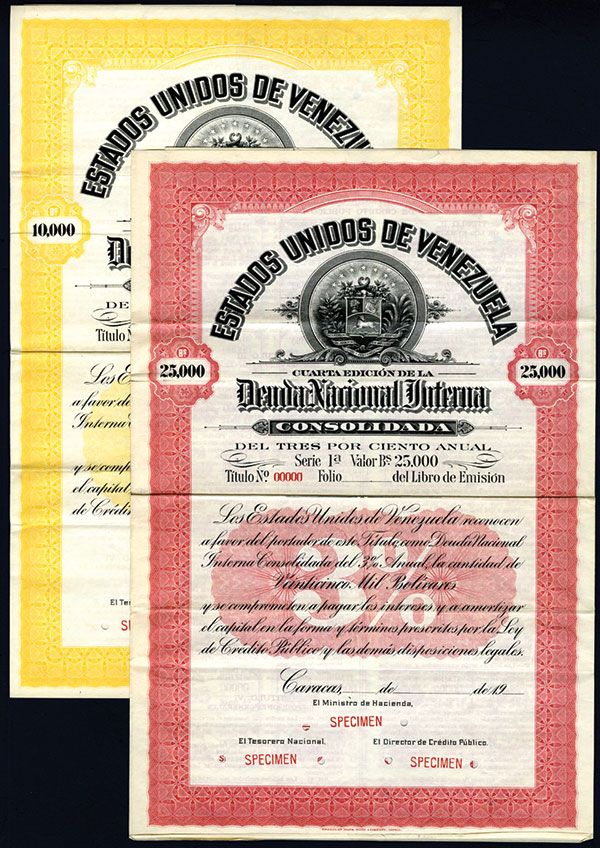 ESTADOS UNIDOS DE VENEZU
Bs
10,000
D
DE
Título N
Los Est
a favor de
Interna C
y se comp
el capital
de Crédit
El Teso
SP
ESTADOS UNIDOS DE VENEZUELA
CUARTA EDICIÓN DE LA
Bs 25,000
Bs 25,000
Deuda Nacional Interna
CONSOLIDADA
DEL TRES POR CIENTO ANUAL
Serie 1a Valor Bs. 25.000
Título No 00000 Folio del Libro de Emisión
3%
Los Estados Unidos de Venezuela reconocen
a favor del portador de este Título, como Deuda Nacional
Interna Consolidada del 3% Anual, la cantidad de
Veinticinco Mil Bolívares
y se comprometen a pagar los intereses y a amortizar
el capital en la forma y términos prescritos por la Ley
de Crédito Público y las demás disposiciones legales.
Caracas, de de 19
El Ministro de Hacienda,
SPECIMEN
El Tesorero Nacional,
El Director de Crédito Público.
SPECIMEN
SPECIMEN